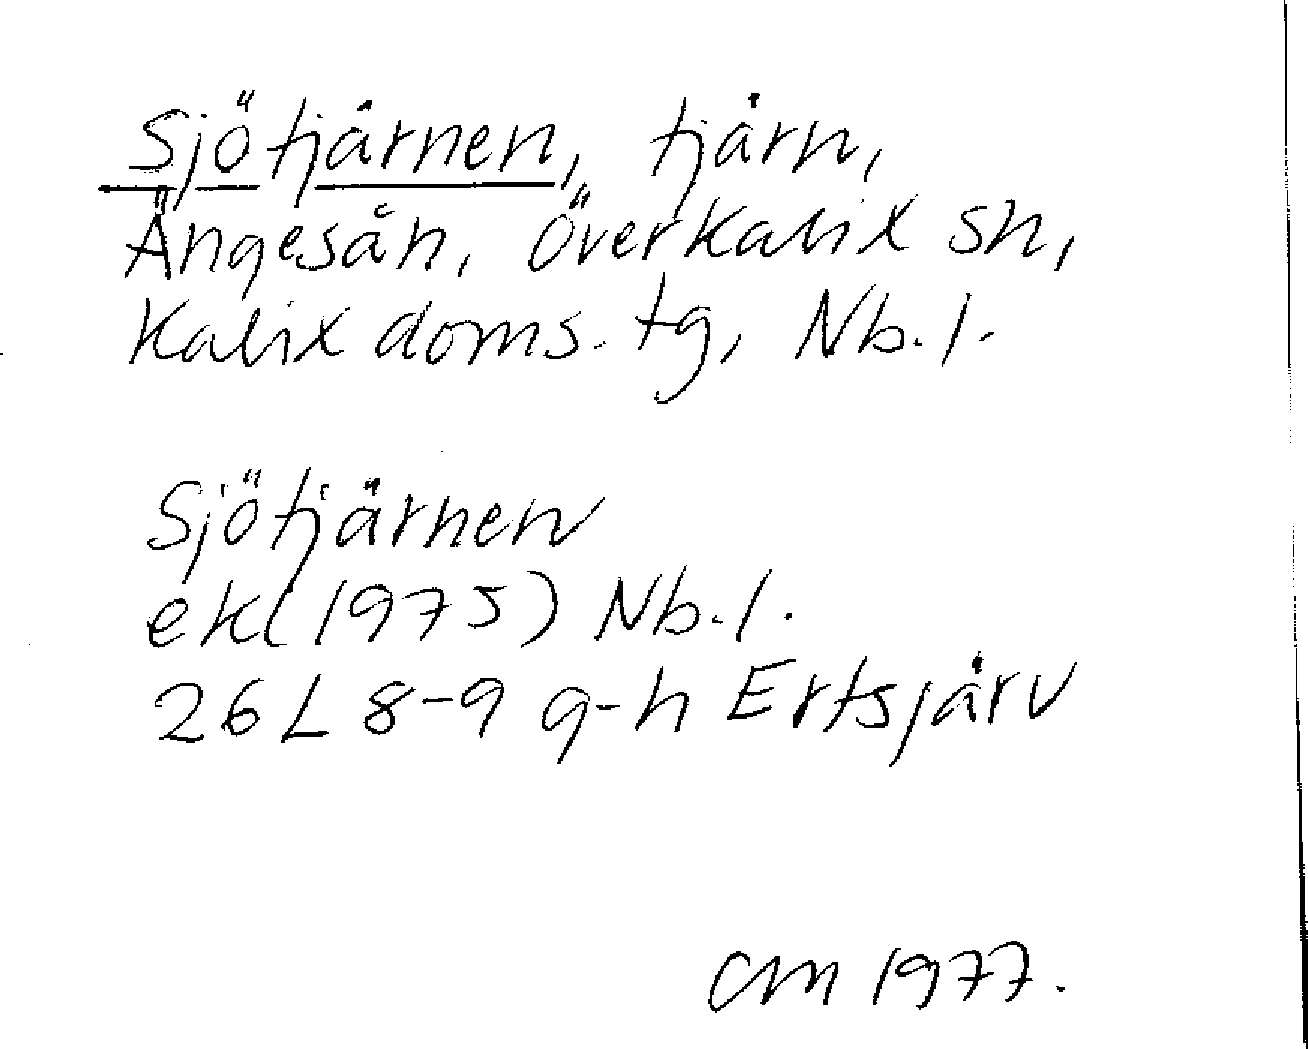 Sjötjärnen, tjärn,
Ängesån, Överkalix sn,
Kalix doms. tg, Nb. l.
Sjötjärnen
ek (1975) Nb. l.
26 L 8-9 g-h Ertsjärv
CM 1977.